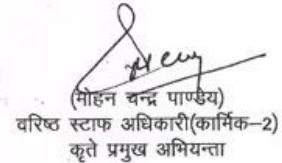 (मोहन चन्द्र पाण्डेय)
वरिष्ठ स्टाफ अधिकारी(कार्मिक–2)
कृते प्रमुख अभियन्ता